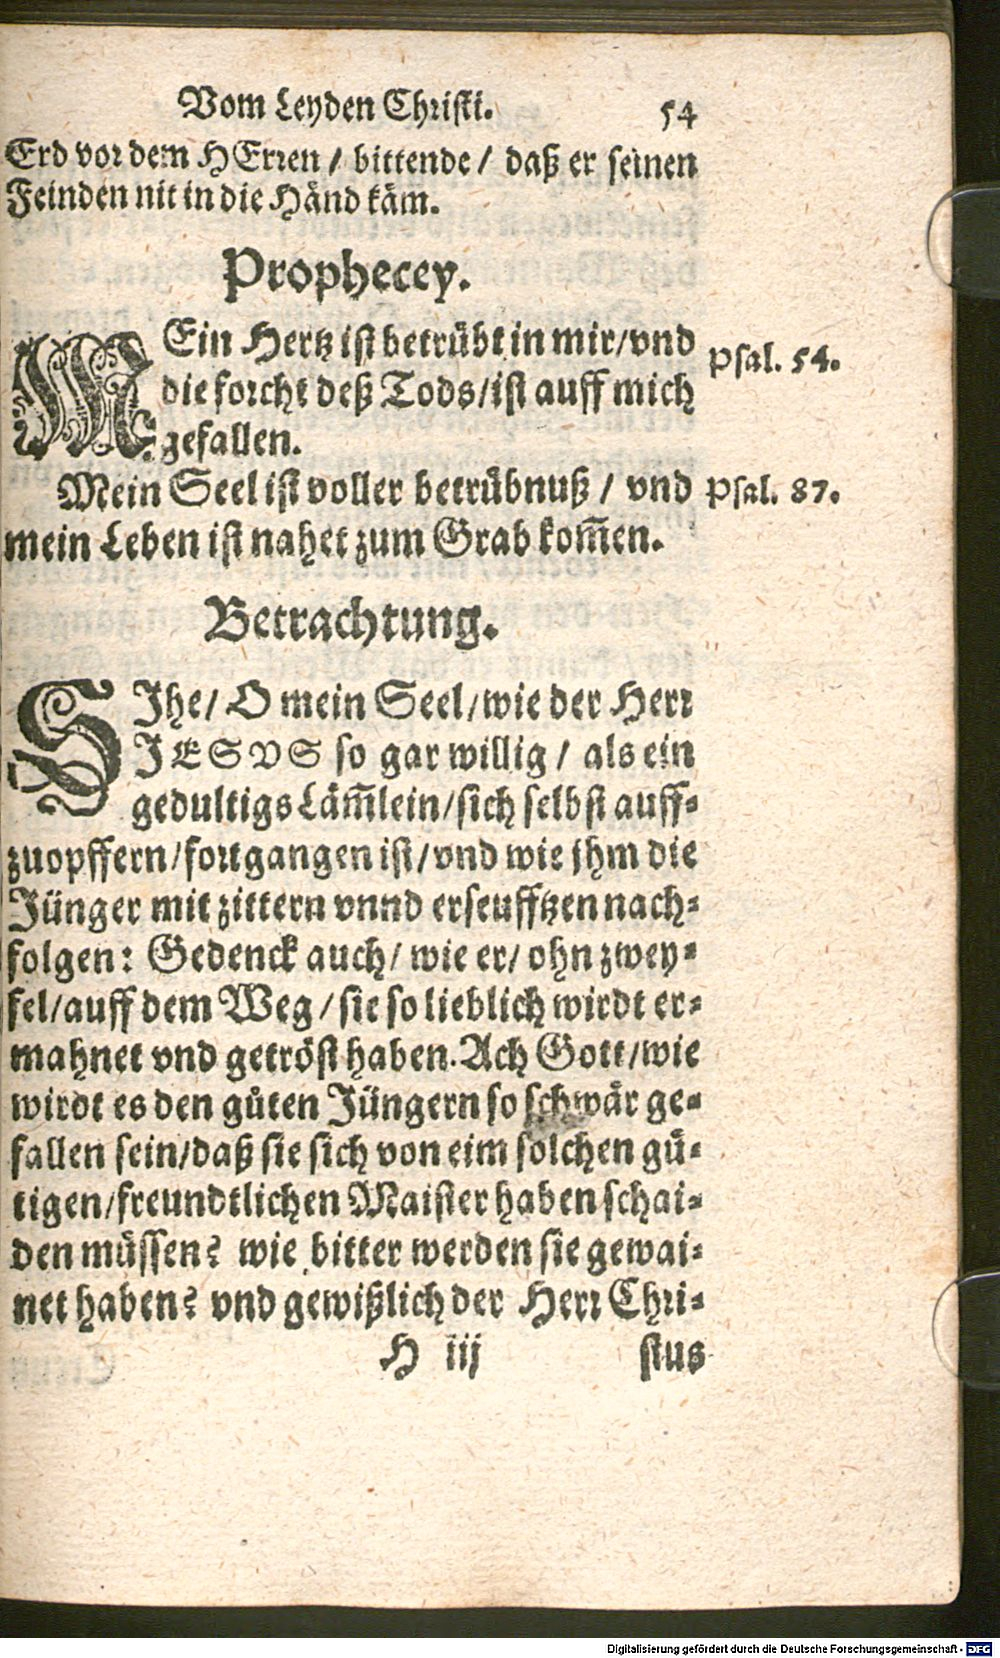 Vom Leyden Christi. 54
Erd vor dem HErren / bittende / daß er seinen
Feinden nit in die Händ käm.
Prophecey.
MEin Hertz ist betrübt in mir/vnd
die forcht deß Tods/ist auff mich
gefallen.
Psal. 54.
Mein Seel ist voller betrübnuß / vnd
mein Leben ist nahet zum Grab kom̃en.
Psal. 87.
Betrachtung.
SIhe/ O mein Seel/wie der Herr
JESVS so gar willig / als ein
gedultigs Läm̃lein/sich selbst auff-
zuopffern/fortgangen ist/vnd wie jhm die
Jünger mit zittern vnnd erseufftzen nach-
folgen: Gedenck auch/ wie er/ ohn zwey-
fel/auff dem Weg / sie so lieblich wirdt er-
mahnet vnd getröst haben. Ach Gott/wie
wirdt es den gůten Jüngern so schwär ge-
fallen sein/daß sie sich von eim solchen gü-
tigen/freundtlichen Maister haben schai-
den müssen? wie bitter werden sie gewai-
net haben? vnd gewißlich der Herr Chri-
H iij stus
Digitalisierung gefördert durch die Deutsche Forschungsgemeinschaft - DFG